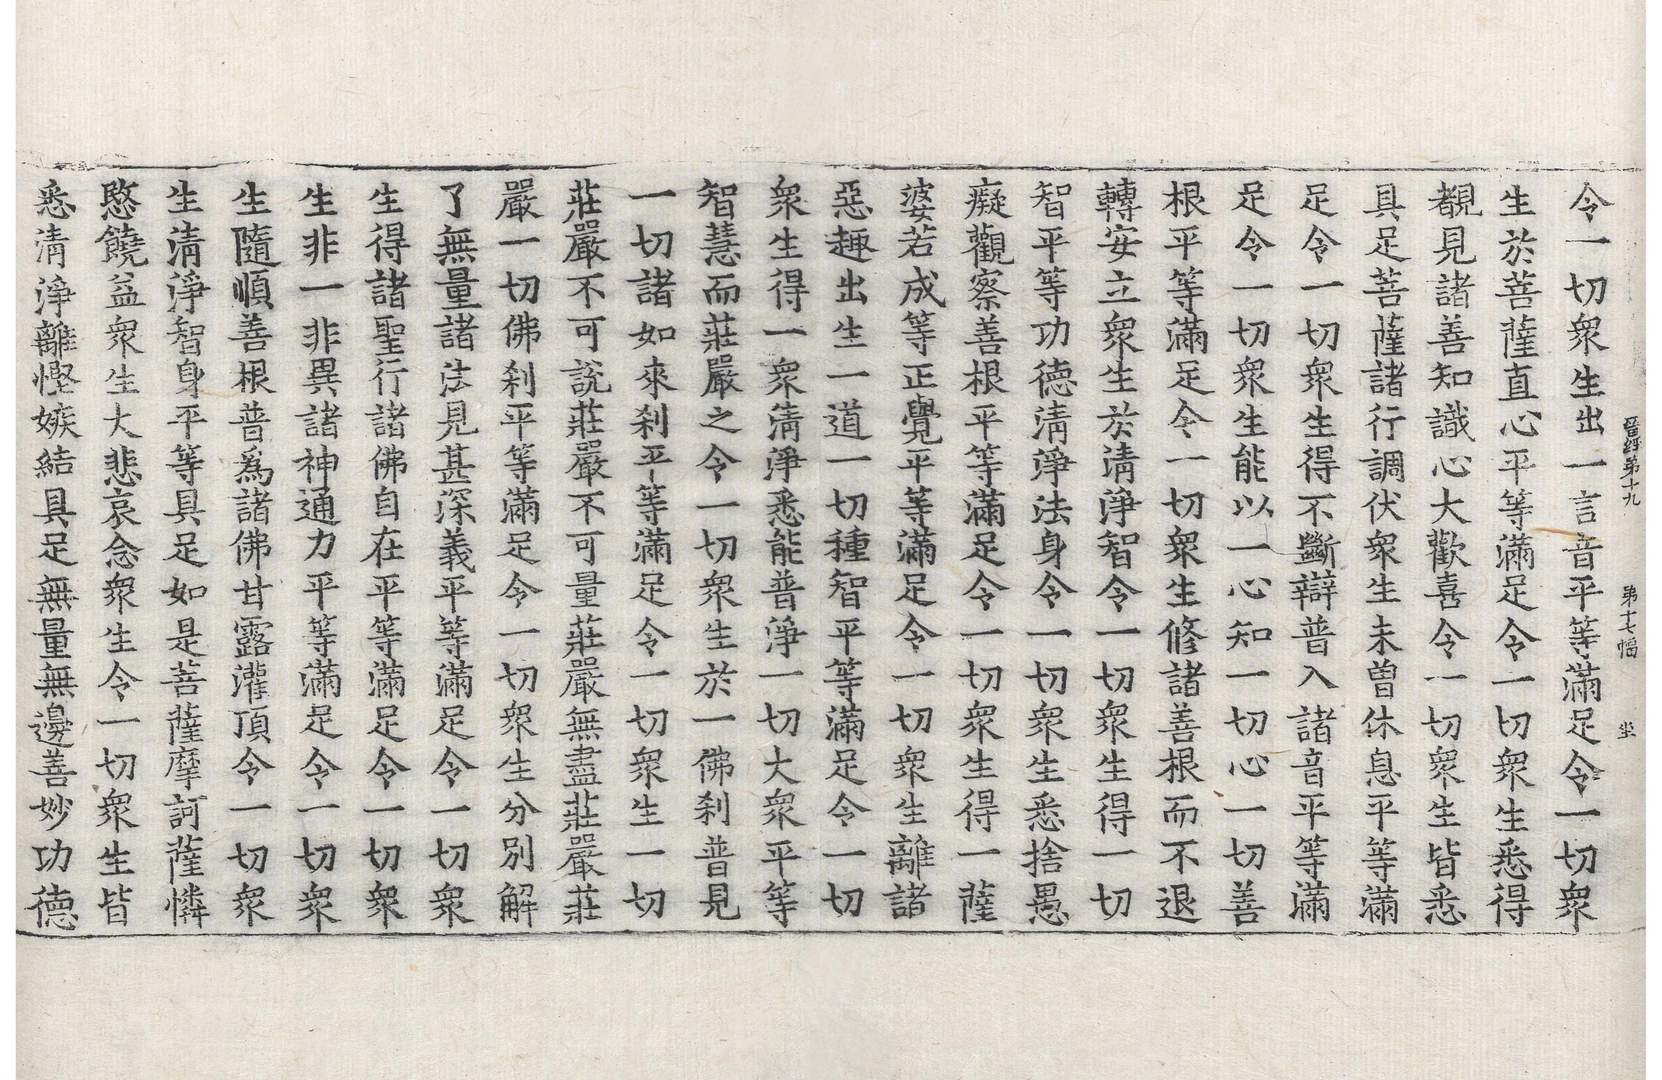 晉經第十九　第十七幅　坐
令一切衆生出一言音平等滿足令一切衆
生於菩薩直心平等滿足令一切衆生悉得
覩見諸善知識心大歡喜令一切衆生皆悉
具足菩薩諸行調伏衆生未曽休息平等滿
足令一切衆生得不斷辯普入諸音平等滿
足令一切衆生能以一心知一切心一切善
根平等滿足令一切衆生修諸善根而不退
轉安立衆生於清淨智令一切衆生得一切
智平等功德清淨法身令一切衆生悉捨愚
癡觀察善根平等滿足令一切衆生得一薩
婆若成等正覺平等滿足令一切衆生離諸
惡趣出生一道一切種智平等滿足令一切
衆生得一衆清淨悉能普淨一切大衆平等
智慧而莊嚴之令一切衆生於一佛刹普見
一切諸如來刹平等滿足令一切衆生一切
莊嚴不可說莊嚴不可量莊嚴無盡莊嚴莊
嚴一切佛刹平等滿足令一切衆生分別解
了無量諸法見甚深義平等滿足令一切衆
生得諸聖行諸佛自在平等滿足令一切衆
生非一非異諸神通力平等滿足令一切衆
生隨順善根普爲諸佛甘露灌頂令一切衆
生清淨智身平等具足如是菩薩摩訶薩憐
愍饒益衆生大悲哀念衆生令一切衆生皆
悉清淨離慳嫉結具足無量無邊善妙功德